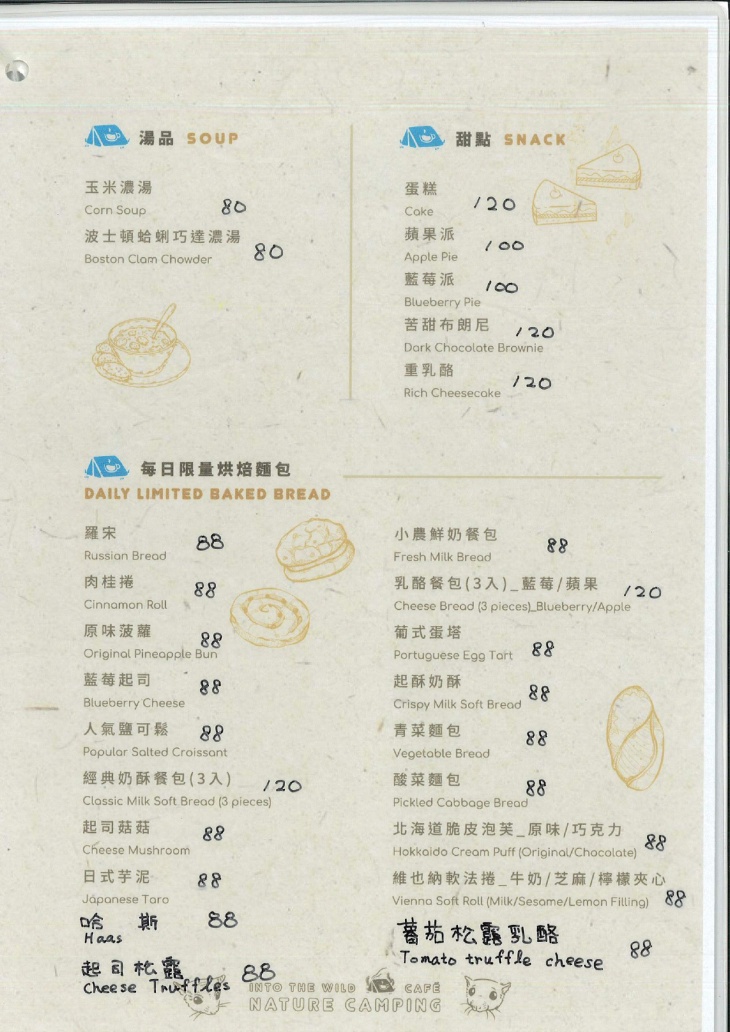 湯品 SOUP
玉米濃湯
Corn Soup 80
波士頓蛤蜊巧達濃湯
Boston Clam Chowder 80
甜點 SNACK
蛋糕
Cake 120
蘋果派
Apple Pie 100
藍莓派
Blueberry Pie 100
苦甜布朗尼
Dark Chocolate Brownie 120
重乳酪
Rich Cheesecake 120
每日限量烘焙麵包
DAILY LIMITED BAKED BREAD
羅宋
Russian Bread 88
肉桂捲
Cinnamon Roll 88
原味菠蘿
Original Pineapple Bun 88
藍莓起司
Blueberry Cheese 88
人氣鹽可鬆
Popular Salted Croissant 88
經典奶酥餐包(3入)
Classic Milk Soft Bread (3 pieces) 120
起司菇菇
Cheese Mushroom 88
日式芋泥
Japanese Taro 88
哈斯 88
Haas
起司松露
Cheese Truffles 88
小農鮮奶餐包
Fresh Milk Bread 88
乳酪餐包(3入)_藍莓/蘋果
Cheese Bread (3 pieces)_Blueberry/Apple 120
葡式蛋塔
Portuguese Egg Tart 88
起酥奶酥
Crispy Milk Soft Bread 88
青菜麵包
Vegetable Bread 88
酸菜麵包
Pickled Cabbage Bread 88
北海道脆皮泡芙_原味/巧克力
Hokkaido Cream Puff (Original/Chocolate) 88
維也納軟法捲_牛奶/芝麻/檸檬夾心
Vienna Soft Roll (Milk/Sesame/Lemon Filling) 88
蕃茄松露乳酪
Tomato truffle cheese 88
INTO THE WILD CAFÉ
NATURE CAMPING